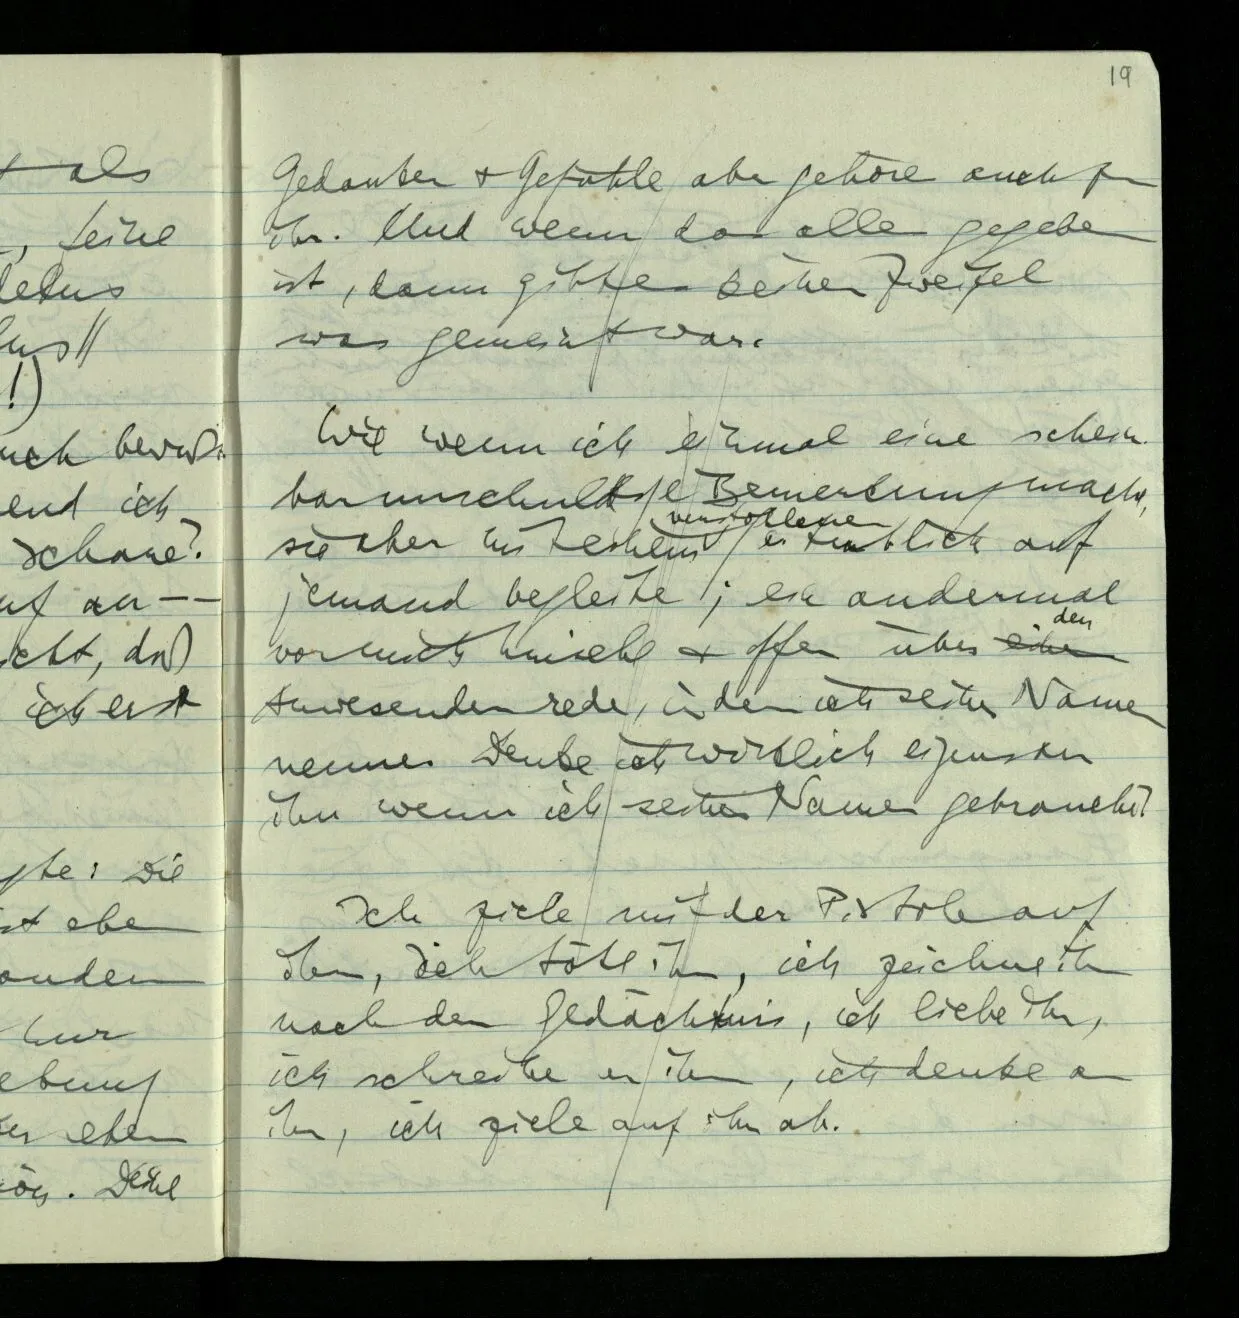 19
t als
, seine
letus
lus//
!)
uch bewußt
end ich
schaue?
uf an – –
icht, daß
ich erst
gte: Die
ist eben
ondern
nur
ebung
er eben
. Deine
Gedanken + Gefühle aber gehören auch zu
ihr. Und wenn das alles gegeben
ist, dann gibt es keinen Zweifel
was gemeint war.
Wie wenn ich einmal eine schein-
bar unschuldige Bemerkung mache,
verstohlenen
sie aber mit einem Blick auf
jemand begleite; ein andermal
den
vor mich hinsehe + offen über einen
Anwesenden rede, indem ich seinen Namen
nenne. Denke ich wirklich eigens an
ihn wenn ich seinen Namen gebrauche?
Ich ziele mit der Pistole auf
ihn, ich töte ihn, ich zeichne ihn
nach dem Gedächtnis, ich liebe ihn,
ich schreibe an ihn, ich denke an
ihn, ich ziele auf ihn ab.